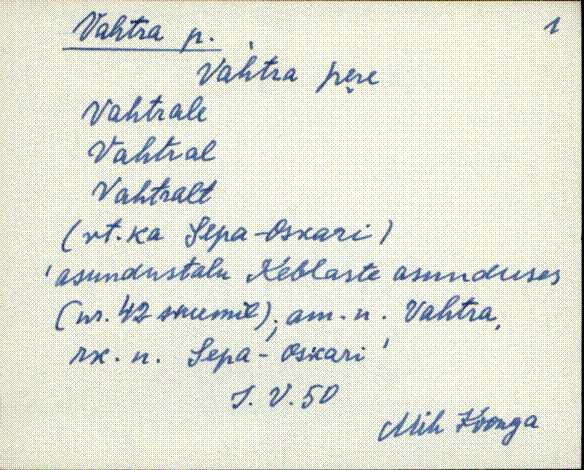 Vahtra p. 1
Vahtra pere
Vahtrale
Vahtral
Vahtralt
(vt. ka Sepa-Oskari)
'asundustalu Keblaste asunduses
(nr. 42 skeemil); am. n. Vahtra,
rx. n. Sepa-Oskari'
I. V. 50
Mih